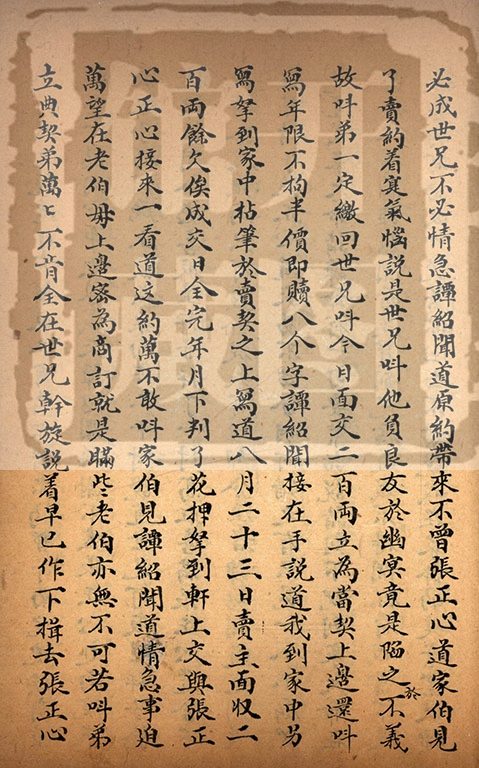 必成世兄不必情急譚紹聞道原約帶來不曾張正心道家伯見
了賣約着寔氣惱説是世兄叫他負良友於幽冥竟是陷之於不義
故叫弟一定繳回世兄叫今日面交二百両立為當契上邊還叫
寫年限不拘半價即贖八个字譚紹聞接在手説道我到家中另
寫拏到家中拈筆於賣契之上寫道八月二十三日賣主面収二
百両餘欠俟成交日全完年月下判了花押拏到軒上交與張正
心正心接來一看道这約萬不敢叫家伯見譚紹聞道情急事迫
萬望在老伯毋上邊宻為商訂就是瞞些老伯亦無不可若叫弟
立典契弟萬〻不肯全在世兄幹旋説着早已作下揖去張正心